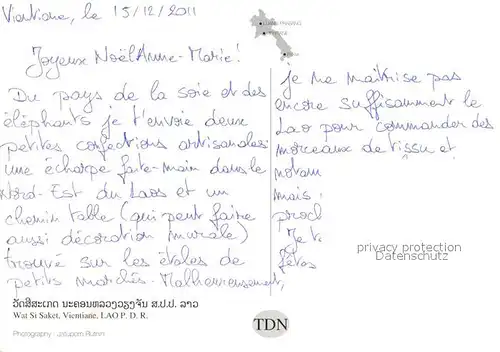 Vientiane, le 15/12/2011
Joyeux Noël Anne-Marie!
Du pays de la soie et des
éléphants je t'envoie deux
petites confections artisanales
une écharpe faite-main dans le
Nord-Est du Laos et un
chemin table (qui peut faire
aussi décoration murale)
trouvé sur les étales de
petits marchés. Malheureusement,
je ne maîtrise pas
encore suffisamment le
Lao pour commander des
morceaux de tissu et
notam
mais
proch
Je t
fêtes
privacy protection
Datenschutz
ວັດສີສະເກດ ນະຄອນຫລວງວຽງຈັນ ສ.ປ.ປ. ລາວ
Wat Si Saket, Vientiane, LAO P. D. R.
TDN